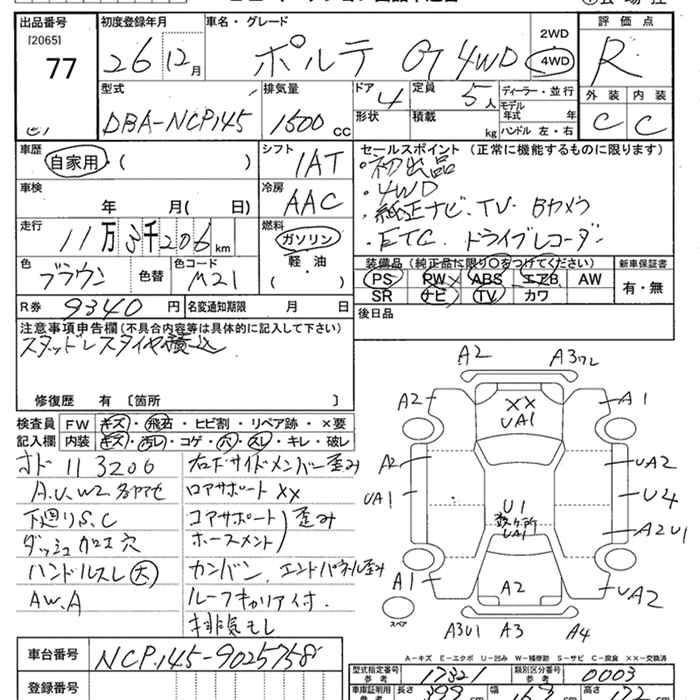 出品番号 初度登録年月 車名・グレード 評価点
[2065]
77 26 12月 ポルテ G 4WD 2WD 4WD R
型式 排気量 ドア 4 定員 5人 ディーラー・並行 外装 内装
DBA-NCP145 1500cc 形状 積載 kg モデル年式 年 ハンドル 左・右 C C
車歴 自家用・( ) シフト 1AT セールスポイント (正常に機能するものに限ります)
・初出品
車検 年 月( 日) 冷房 AAC ・4WD
・純正ナビ、TV、Bカメラ
走行 11万3千206km 燃料 ガソリン 軽・油 ・ETC、ドライブレコーダー
色 ブラウン 色替 色コード M21 装備品(純正品に限り○をつけてください) 新車保証書
PS PW ABS エアB AW 有・無
SR ナビ TV カワ
R券 9340円 名変通知期限 月 日 後日品
注意事項申告欄(不具合内容等は具体的に記入して下さい)
スタッドレスタイヤ積込
修復歴 有〔箇所 〕
検査員 FW キズ・飛石・ヒビ割・リペア跡・×要
記入欄 内装 キズ・汚レ・コゲ・穴・スレ・キレ・破レ
オド 113206 右下サイドメンバー歪み
A.U.W2 各ヤセ ロアサポート XX
下廻りS.C コアサポート 歪み
ダッシュ加工穴 ホースメント
ハンドルスレ大 カンバン、エンドパネル歪み
AW.A ルーフキャリア付.
排気モレ
A2 A3ワレ
A2 XX UA1 A1
A2 UA2
UA1 U1 U4
数ヶ所 UA1 A2U1
A1 A2 UA2
スペア A3U1 A3 A4
A-キズ E-エクボ U-凹み W-補修跡 S-サビ C-腐食 ××-交換済
車台番号 NCP145-9025758
型式指定番号 参考 17321 類別区分番号 参考 0003
登録番号 車庫証明用 参考 長さ 399 cm 幅 163 cm 高さ 172 cm